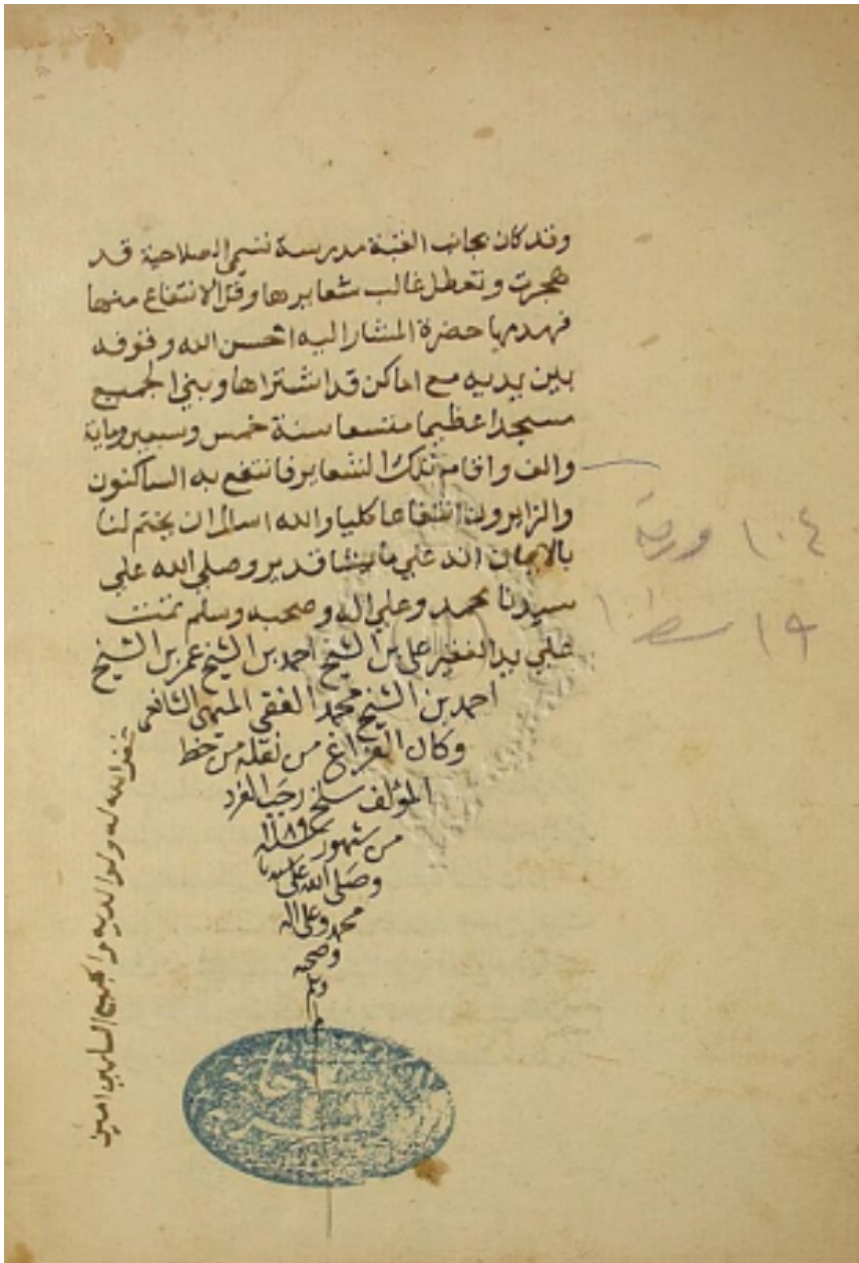 وقد كان بجانب القبة مدرسة تسمي الصلاحية قد
هجرت وتعطل غالب شعايرها وقل الانتفاع منها
فهدمها حضرة المشار اليه احسن الله وقوفه
بين يديه مع اماكن قد اشتراها وبني الجميع
مسجدا عظيما متسعا سنة خمس وسبعين وماية
والف واقام تلك الشعاير فانتفع به الساكنون
والزايرون انتفاعا كليا والله اسال ان يختم لنا
بالايمان انه علي ما يشا قدير وصلي الله علي
سيدنا محمد وعلي اله وصحبه وسلم تمت
علي يد الفقير علي بن الشيخ احمد بن الشيخ عمر بن الشيخ
احمد بن الشيخ محمد الفقي الميهى الشافعى
وكان الفراغ من نقله من خط
المؤلف سلخ رجب الفرد
من شهور سنة ١١٨٩
وصلى الله على سيدنا
محمد وعلى اله
وصحبه
وسلم
م
غفر الله له ولوالديه ولجميع المسلمين امين
١٠٤ ورقة
١٩ سطرا